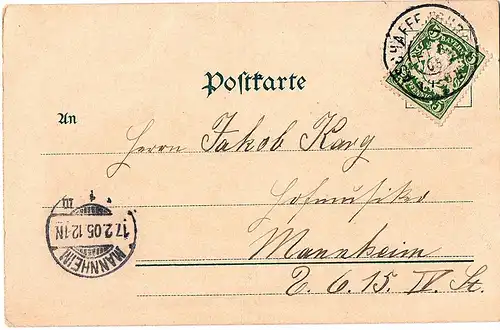 Postkarte
An
Herrn Jakob Karg
Hofmusiker
Mannheim
D. 6. 15. IV. St.
MANNHEIM
17.2.05.12-1N
1
III
5
5